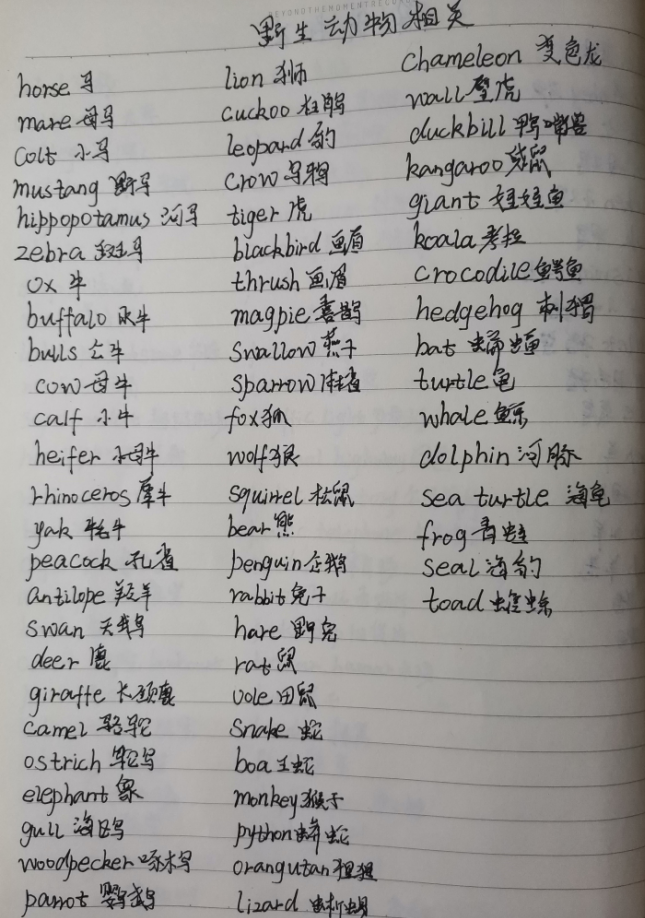 野生动物相关
horse 马
mare 母马
colt 小马
mustang 野马
hippopotamus 河马
zebra 斑马
ox 牛
buffalo 水牛
bulls 公牛
cow 母牛
calf 小牛
heifer 小母牛
rhinoceros 犀牛
yak 牦牛
peacock 孔雀
antilope 羚羊
swan 天鹅
deer 鹿
giraffe 长颈鹿
camel 骆驼
ostrich 鸵鸟
elephant 象
gull 海鸥
woodpecker 啄木鸟
parrot 鹦鹉
lion 狮
cuckoo 杜鹃
leopard 豹
crow 乌鸦
tiger 虎
blackbird 画眉
thrush 画眉
magpie 喜鹊
swallow 燕子
sparrow 麻雀
fox 狐
wolf 狼
squirrel 松鼠
bear 熊
penguin 企鹅
rabbit 兔子
hare 野兔
rat 鼠
vole 田鼠
snake 蛇
boa 王蛇
monkey 猴子
python 蟒蛇
orangutan 猩猩
lizard 蜥蜴
chameleon 变色龙
wall 壁虎
duckbill 鸭嘴兽
kangaroo 袋鼠
giant 娃娃鱼
koala 考拉
crocodile 鳄鱼
hedgehog 刺猬
bat 蝙蝠
turtle 龟
whale 鲸
dolphin 河豚
sea turtle 海龟
frog 青蛙
seal 海豹
toad 蟾蜍